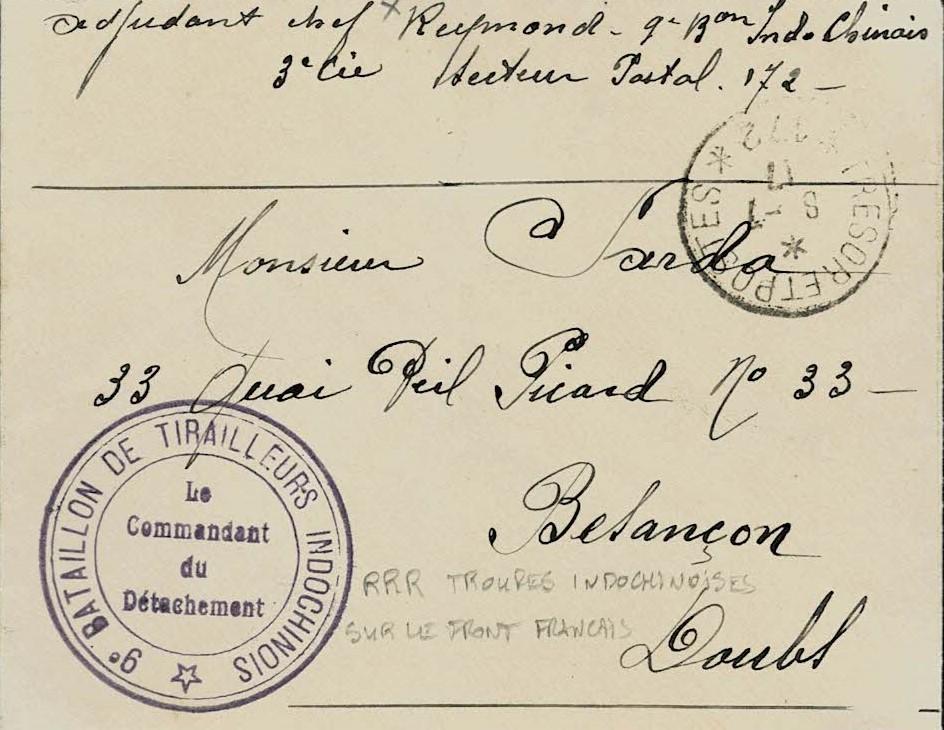 adjudant chef Reymond - 9e Bon Indo Chinois
3e Cie Secteur Postal . 172 -
* TRESOR ET POSTES * 172 *
8 - 7
17
Monsieur Sarda
33 Quai Veil Picard No 33 -
Besançon
Doubs
9e BATAILLON DE TIRAILLEURS INDOCHINOIS
Le
Commandant
du
Détachement
RRR TROUPES INDOCHINOISES
SUR LE FRONT FRANCAIS